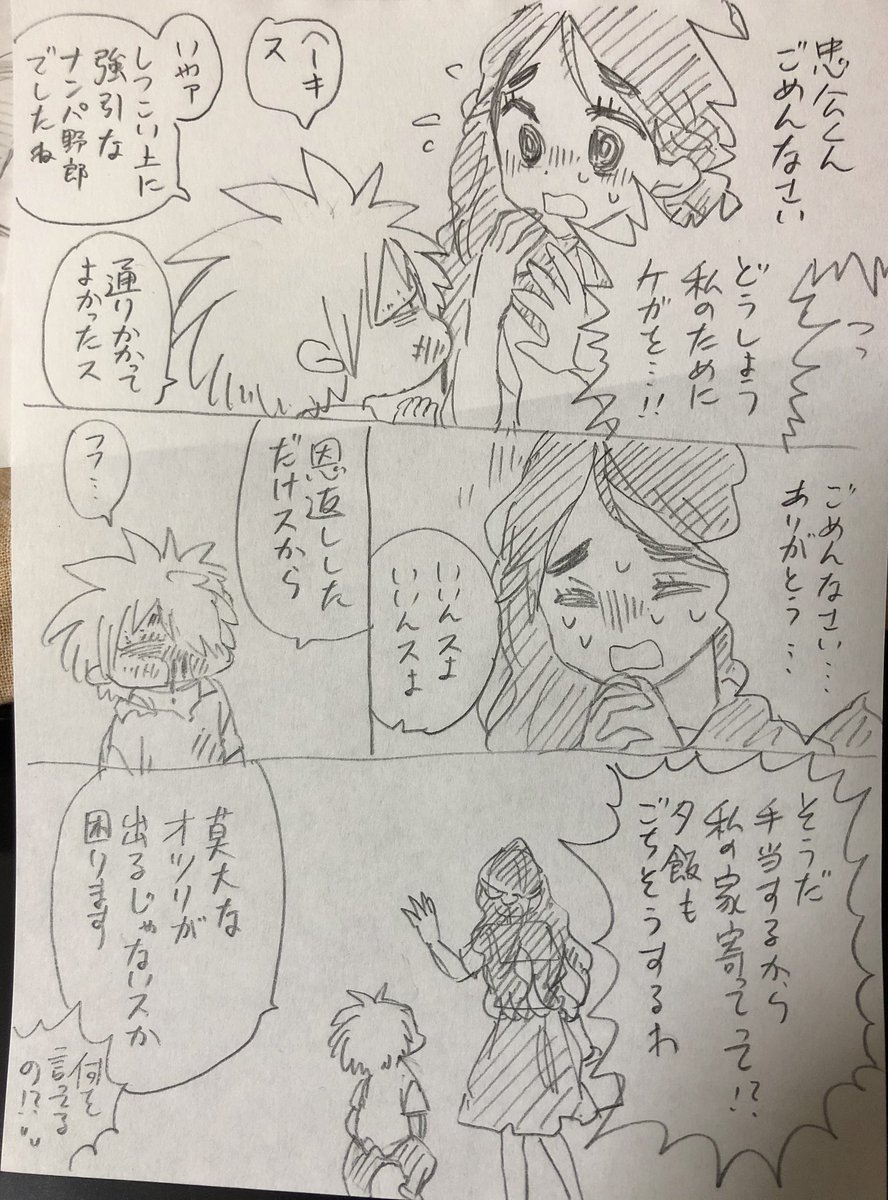 忠公くん
ごめんなさい
どうしよう
私のために
ケガを…!!
へーき
ス
いやァ
しつこい上に
強引な
ナンパ野郎
でしたね
通りかかって
よかったス
ごめんなさい…
ありがとう…
いいんスよ
いいんスよ
恩返しした
だけスから
フフ…
そうだ
手当するから
私の家寄ってって!?
夕飯も
ごちそうするわ
莫大な
オツリが
出るじゃないスか
困ります
何を
言ってる
の!?